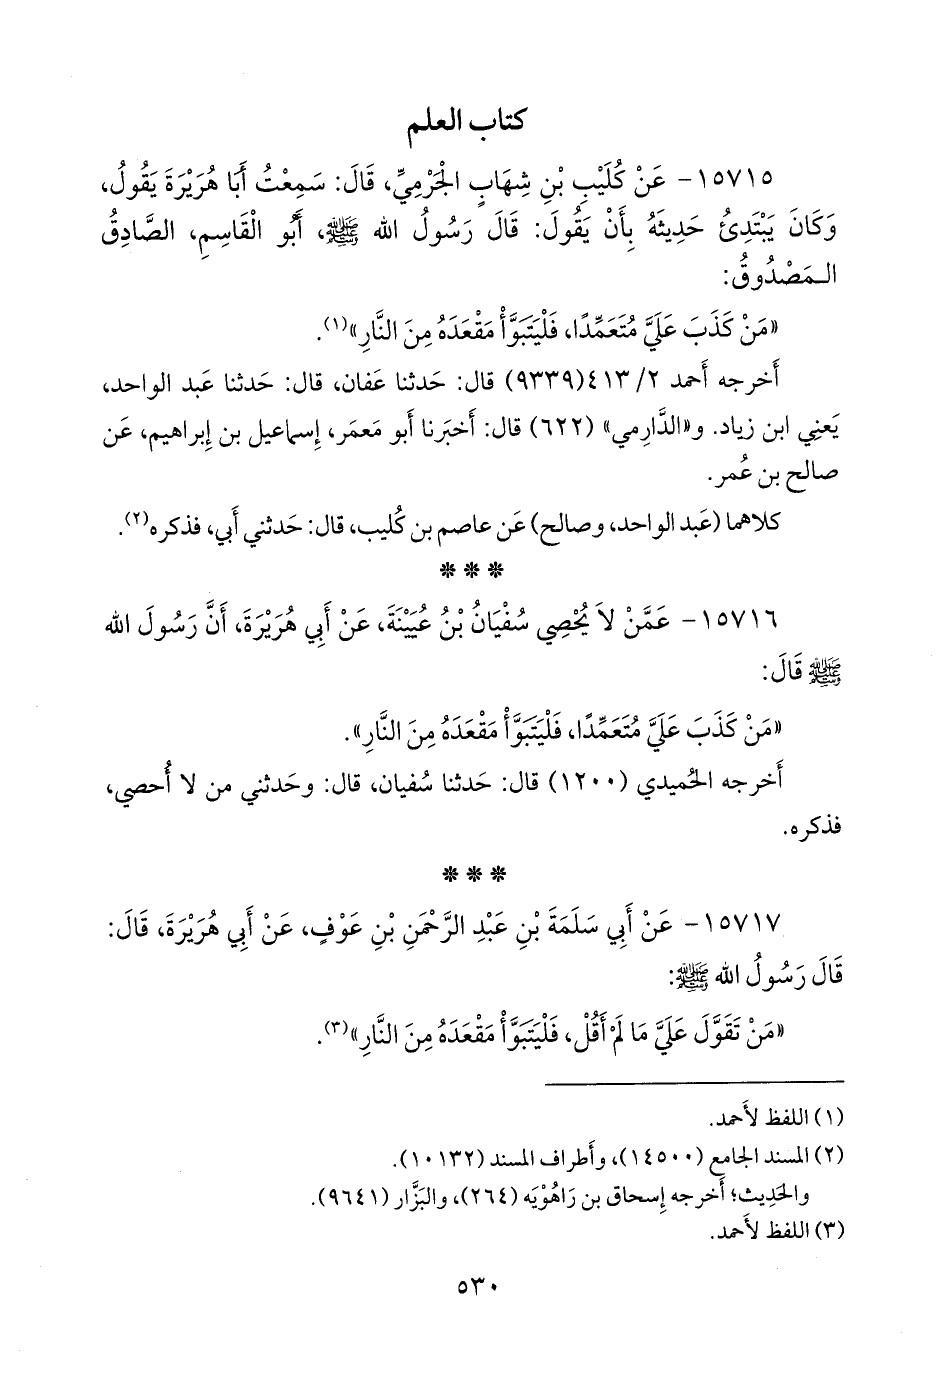 كتاب العلم
١٥٧١٥- عَنْ كُلَيْبِ بْنِ شِهَابٍ الْجَرْمِيِّ، قَالَ: سَمِعْتُ أَبَا هُرَيْرَةَ يَقُولُ،
وَكَانَ يَبْتَدِئُ حَدِيثَهُ بِأَنْ يَقُولَ: قَالَ رَسُولُ الله ﷺ، أَبُو الْقَاسِمِ، الصَّادِقُ
الـمَصْدُوقُ:
«مَنْ كَذَبَ عَلَيَّ مُتَعَمِّدًا، فَلْيَتَبَوَّأْ مَقْعَدَهُ مِنَ النَّارِ»(١).
أَخرجه أَحمد ٢/ ٤١٣(٩٣٣٩) قال: حَدثنا عَفان، قال: حَدثنا عَبد الواحد،
يَعنِي ابن زياد. و«الدَّارِمي» (٦٢٢) قال: أَخبَرنا أَبو مَعمَر، إِسماعيل بن إِبراهيم، عَن
صالح بن عُمر.
كلاهما (عَبد الواحد، وصالح) عَن عاصم بن كُليب، قال: حَدثني أَبي، فذكره(٢).
* * *
١٥٧١٦- عَمَّنْ لاَ يُحْصِي سُفْيَانُ بْنُ عُيَيْنَةَ، عَنْ أَبِي هُرَيْرَةَ، أَنَّ رَسُولَ الله
ﷺ قَالَ:
«مَنْ كَذَبَ عَلَيَّ مُتَعَمِّدًا، فَلْيَتَبَوَّأْ مَقْعَدَهُ مِنَ النَّارِ».
أَخرجه الحُميدي (١٢٠٠) قال: حَدثنا سُفيان، قال: وحَدثني من لا أُحصي،
فذكره.
* * *
١٥٧١٧- عَنْ أَبِي سَلَمَةَ بْنِ عَبْدِ الرَّحْمَنِ بْنِ عَوْفٍ، عَنْ أَبِي هُرَيْرَةَ، قَالَ:
قَالَ رَسُولُ الله ﷺ:
«مَنْ تَقَوَّلَ عَلَيَّ مَا لَمْ أَقُلْ، فَلْيَتَبَوَّأْ مَقْعَدَهُ مِنَ النَّارِ»(٣).
(١) اللفظ لأَحمد.
(٢) المسند الجامع (١٤٥٠٠)، وأَطراف المسند (١٠١٣٢).
والحَدِيث؛ أَخرجه إِسحاق بن رَاهُوْيَه (٢٦٤)، والبَزَّار (٩٦٤١).
(٣) اللفظ لأَحمد.
٥٣٠